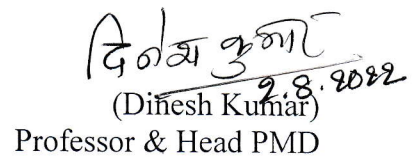 दिनेश कुमार
2.8.2022
(Dinesh Kumar)
Professor & Head PMD